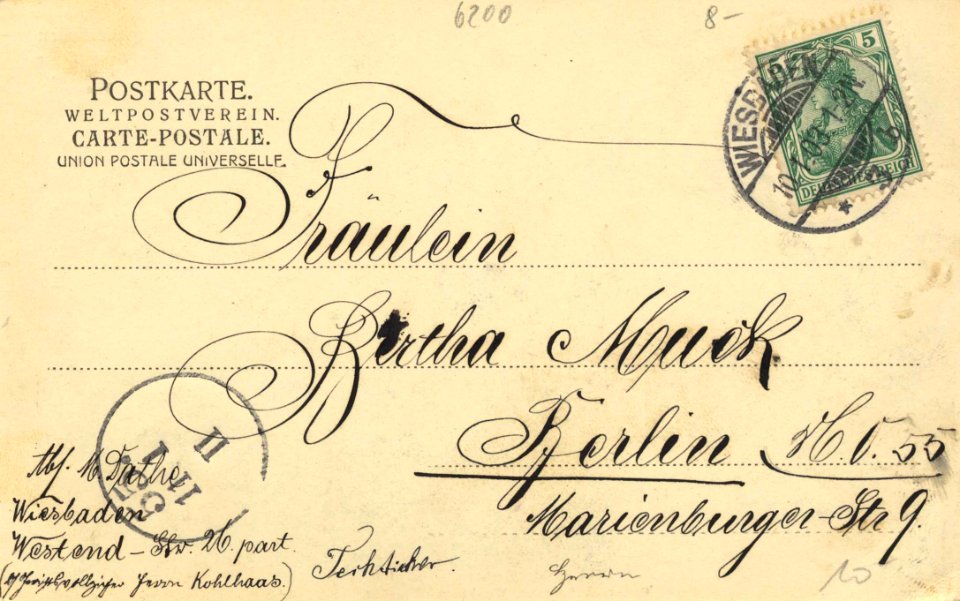 6200
8-
POSTKARTE.
WELTPOSTVEREIN.
CARTE-POSTALE.
UNION POSTALE UNIVERSELLE.
5
WIESBADEN
10.1.03.1-2N
DEUTSCHES REICH
Fräulein
Bertha Muck
Berlin N.O. 55
Marienburger-Str 9.
11
Abs. M. Dathe
Wiesbaden
Westend-Str. 26. part.
Herrn Kohlhaas.)
Herrn
10